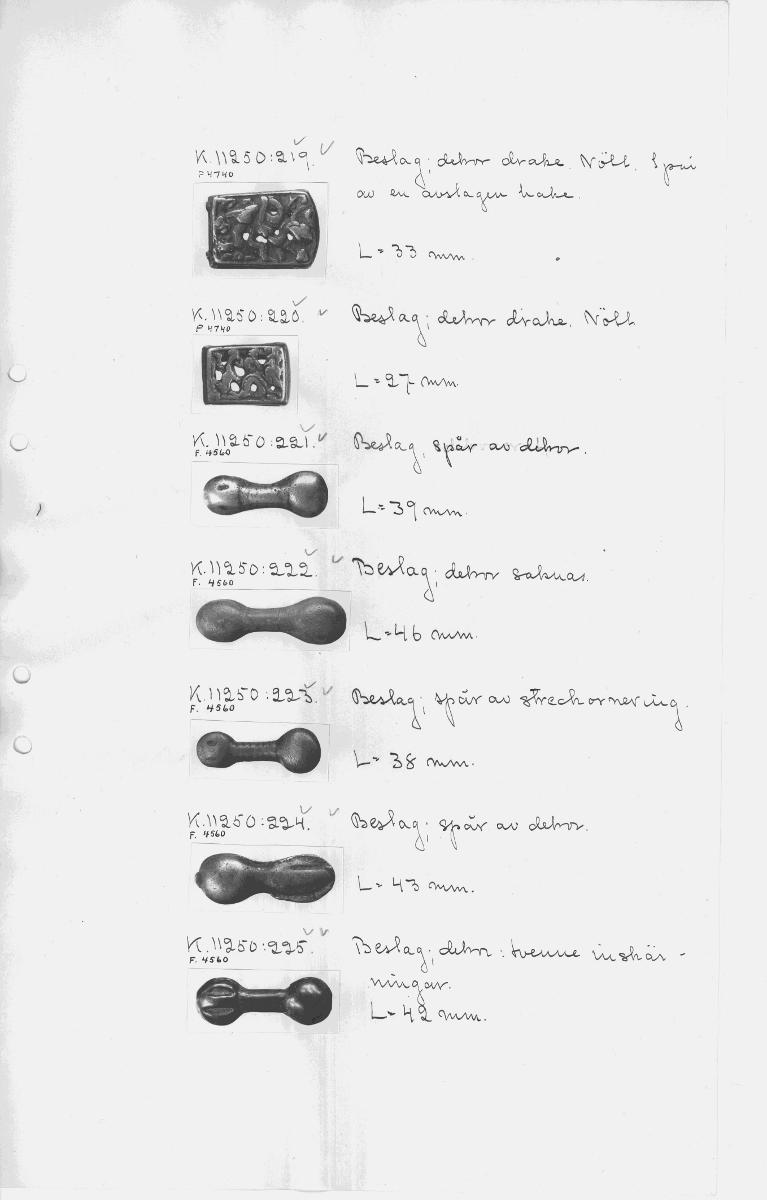 K.11250:219. Beslag; dekor drake. Nött. Spår
P 4740
av en avslagen hake.
L = 33 mm.
K.11250:220. Beslag; dekor drake. Nött
P 4740
L = 27 mm.
K.11250:221. Beslag, spår av dekor.
F. 4560
L = 39 mm.
K.11250:222. Beslag; dekor saknas.
F. 4560
L = 46 mm.
K.11250:223. Beslag; spår av streckornering.
F. 4560
L = 38 mm.
K.11250:224. Beslag; spår av dekor.
F. 4560
L = 43 mm.
K.11250:225. Beslag; dekor: tvenne inskär-
F. 4560
ningar.
L = 42 mm.